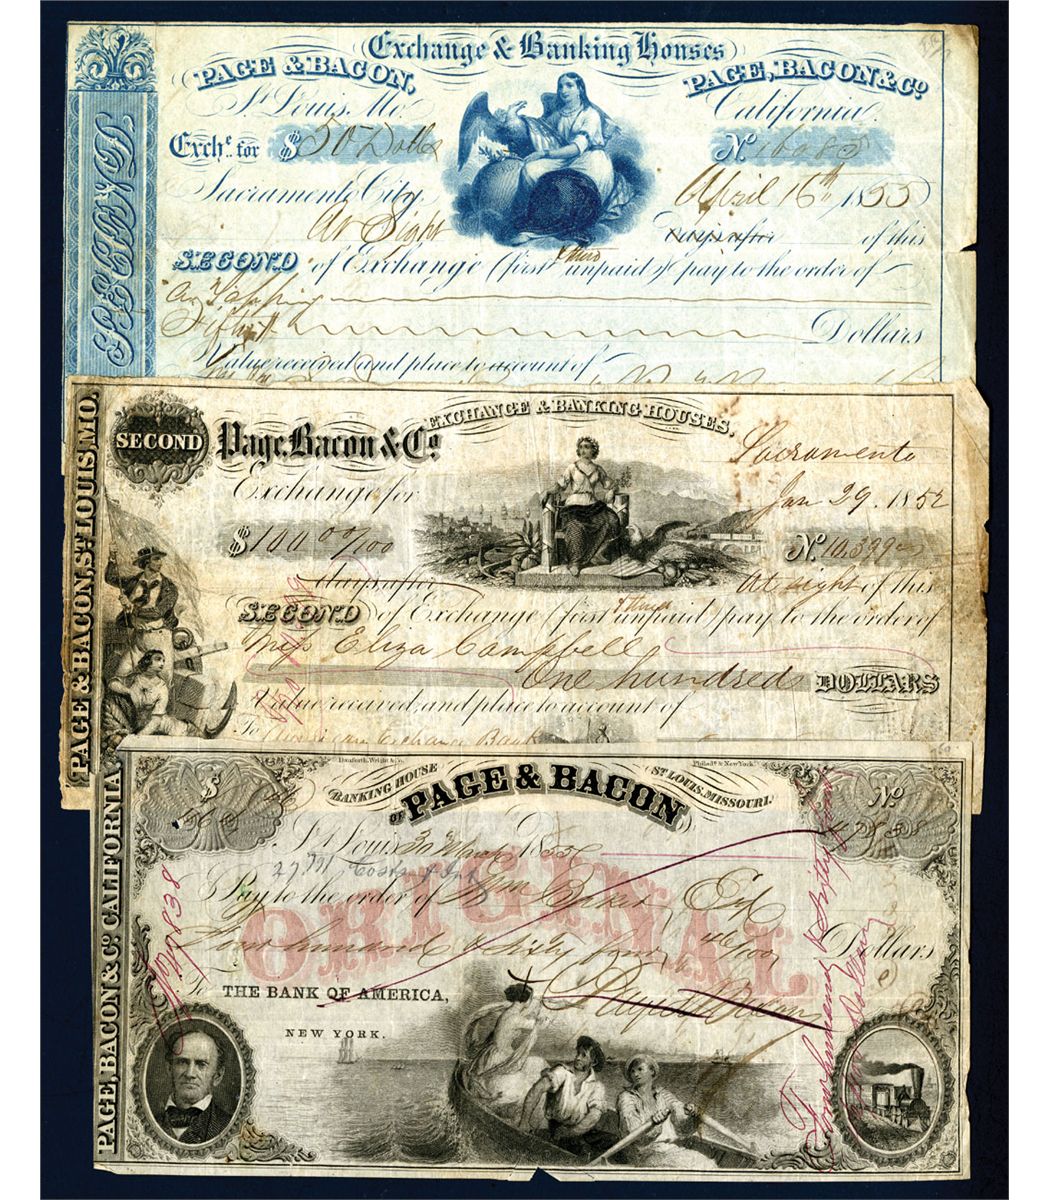 Exchange & Banking Houses
PAGE & BACON, PAGE, BACON & Co
St Louis, Mo. California.
Exche for $ 50 Dolls No 16085
Sacramento City, April 16th, 1855
At Sight days after of this
SECOND of Exchange (first & third unpaid) pay to the order of
Fifty Dollars
Value received and place to account of
SECOND
EXCHANGE & BANKING HOUSES.
Page, Bacon & Co
Sacramento
Exchange for Jan 29. 1852
$ 100 00/100 No 10,399
days after At sight of this
SECOND of Exchange (first & third unpaid) pay to the order of
Miss Eliza Campbell
One hundred DOLLARS
Value received and place to account of
To American Exchange Bank
PAGE & BACON, ST LOUIS, MO.
Danforth, Wright & Co. Philada & New York.
BANKING HOUSE OF PAGE & BACON ST LOUIS, MISSOURI.
$ No
St Louis, 185
27.771 Costs & Int
Pay to the order of Wm Baker, Esq
ORIGINAL
Four hundred & sixty four 46/100 Dollars
To
THE BANK OF AMERICA,
NEW YORK.
PAGE, BACON & Co CALIFORNIA.